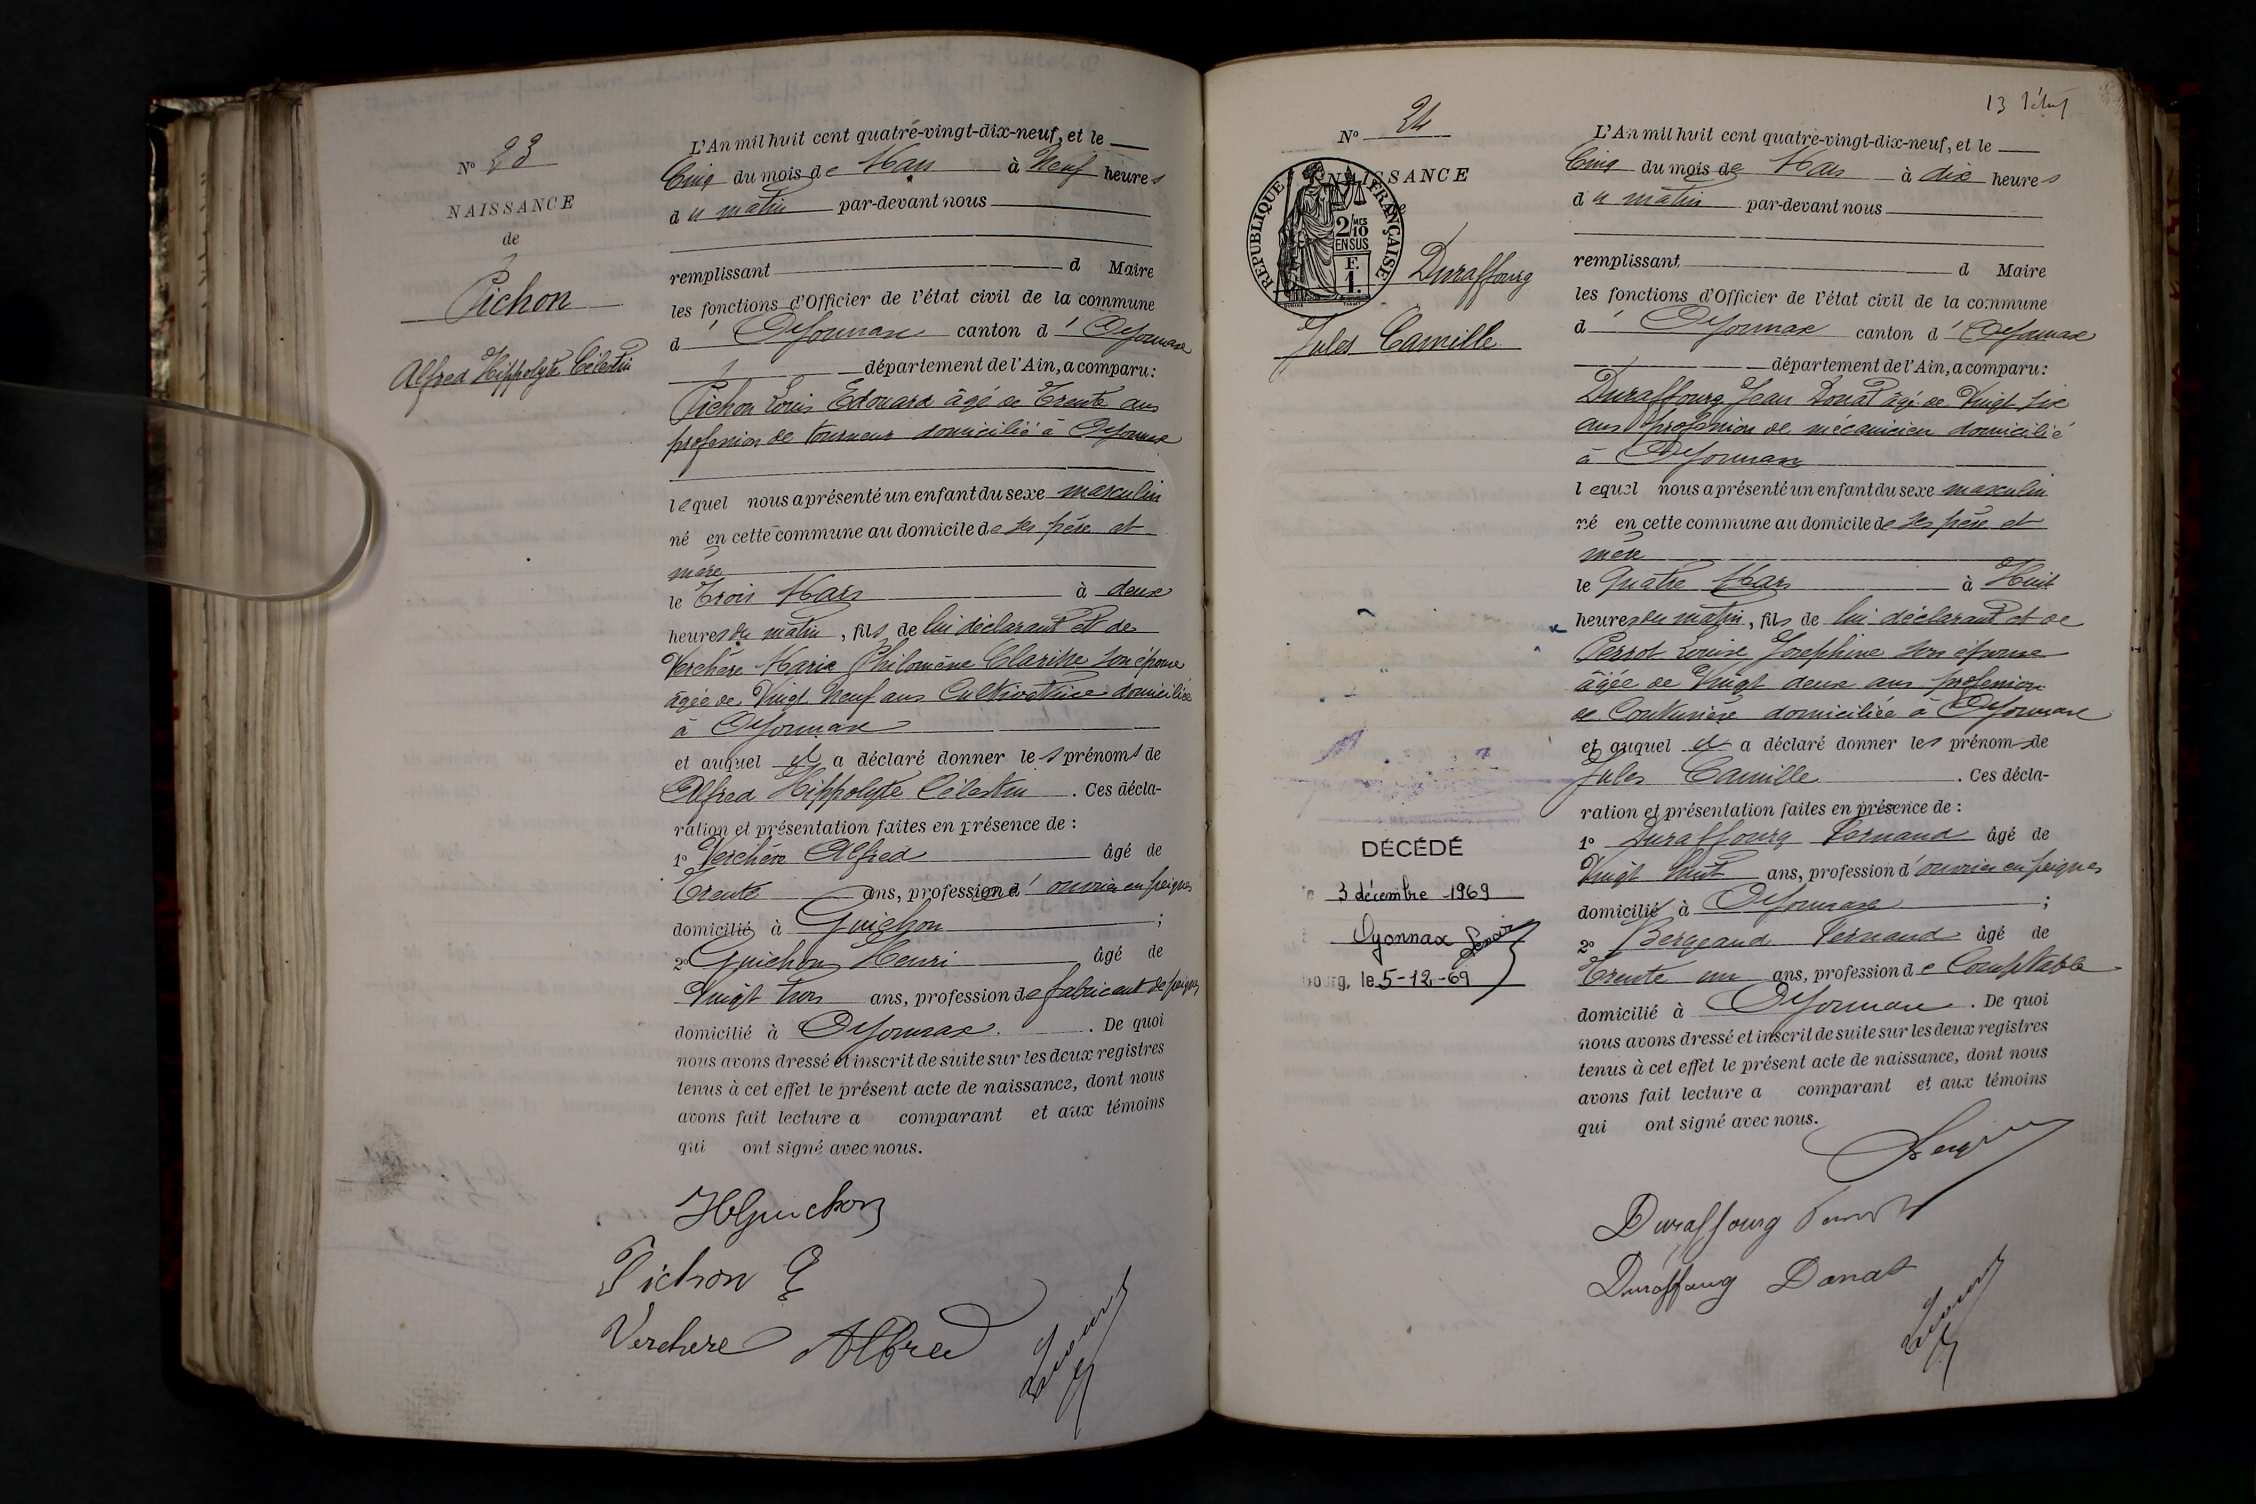 N° 23
NAISSANCE
de
Pichon
Alfred Hippolyte Célestin
L'An mil huit cent quatre-vingt-dix-neuf, et le
Cinq du mois de Mars à Neuf heures
du matin par-devant nous
remplissant d Maire
les fonctions d'Officier de l'état civil de la commune
d' Oyonnax canton d' Oyonnax
département de l'Ain, a comparu:
Pichon Louis Edouard âgé de Trente ans
profession de tourneur domicilié à Oyonnax
lequel nous a présenté un enfant du sexe masculin
né en cette commune au domicile de ses père et
mère
le Trois Mars à deux
heures du matin, fils de lui déclarant et de
Verchère Marie Philomène Clarisse son épouse
âgée de Vingt Neuf ans Cultivatrice domiciliée
à Oyonnax
et auquel il a déclaré donner les prénoms de
Alfred Hippolyte Célestin. Ces décla-
ration et présentation faites en présence de:
1° Verchère Alfred âgé de
Trente ans, profession d'ouvrier en peignes
domicilié à Guichon;
2° Guichon Henri âgé de
Vingt trois ans, profession de fabricant de peignes
domicilié à Oyonnax. De quoi
nous avons dressé et inscrit de suite sur les deux registres
tenus à cet effet le présent acte de naissance, dont nous
avons fait lecture a comparant et aux témoins
qui ont signé avec nous.
H Guichon
Pichon E
Verchere Alfred
13
N° 24
NAISSANCE
REPUBLIQUE FRANÇAISE
2/10 MES
EN SUS
F.
1.
Duraffourg
Jules Camille
L'An mil huit cent quatre-vingt-dix-neuf, et le
Cinq du mois de Mars à dix heures
du matin par-devant nous
remplissant d Maire
les fonctions d'Officier de l'état civil de la commune
d' Oyonnax canton d' Oyonnax
département de l'Ain, a comparu:
Duraffourg Jean Donat âgé de Vingt six
ans profession de mécanicien domicilié
à Oyonnax
lequel nous a présenté un enfant du sexe masculin
né en cette commune au domicile de ses père et
mère
le Quatre Mars à Huit
heures du matin, fils de lui déclarant et de
Perrot Louise Josephine son épouse
âgée de Vingt deux ans profession
de Couturière domiciliée à Oyonnax
et auquel il a déclaré donner les prénoms de
Jules Camille. Ces décla-
ration et présentation faites en présence de:
1° Duraffourg Fernand âgé de
Vingt huit ans, profession d'ouvrier en peignes
domicilié à Oyonnax;
2° Bergeaud Fernand âgé de
Trente un ans, profession de Comptable
domicilié à Oyonnax. De quoi
nous avons dressé et inscrit de suite sur les deux registres
tenus à cet effet le présent acte de naissance, dont nous
avons fait lecture a comparant et aux témoins
qui ont signé avec nous.
Duraffourg
Duraffourg Donat
DÉCÉDÉ
3 décembre 1969
Oyonnax
bourg, le 5-12-69